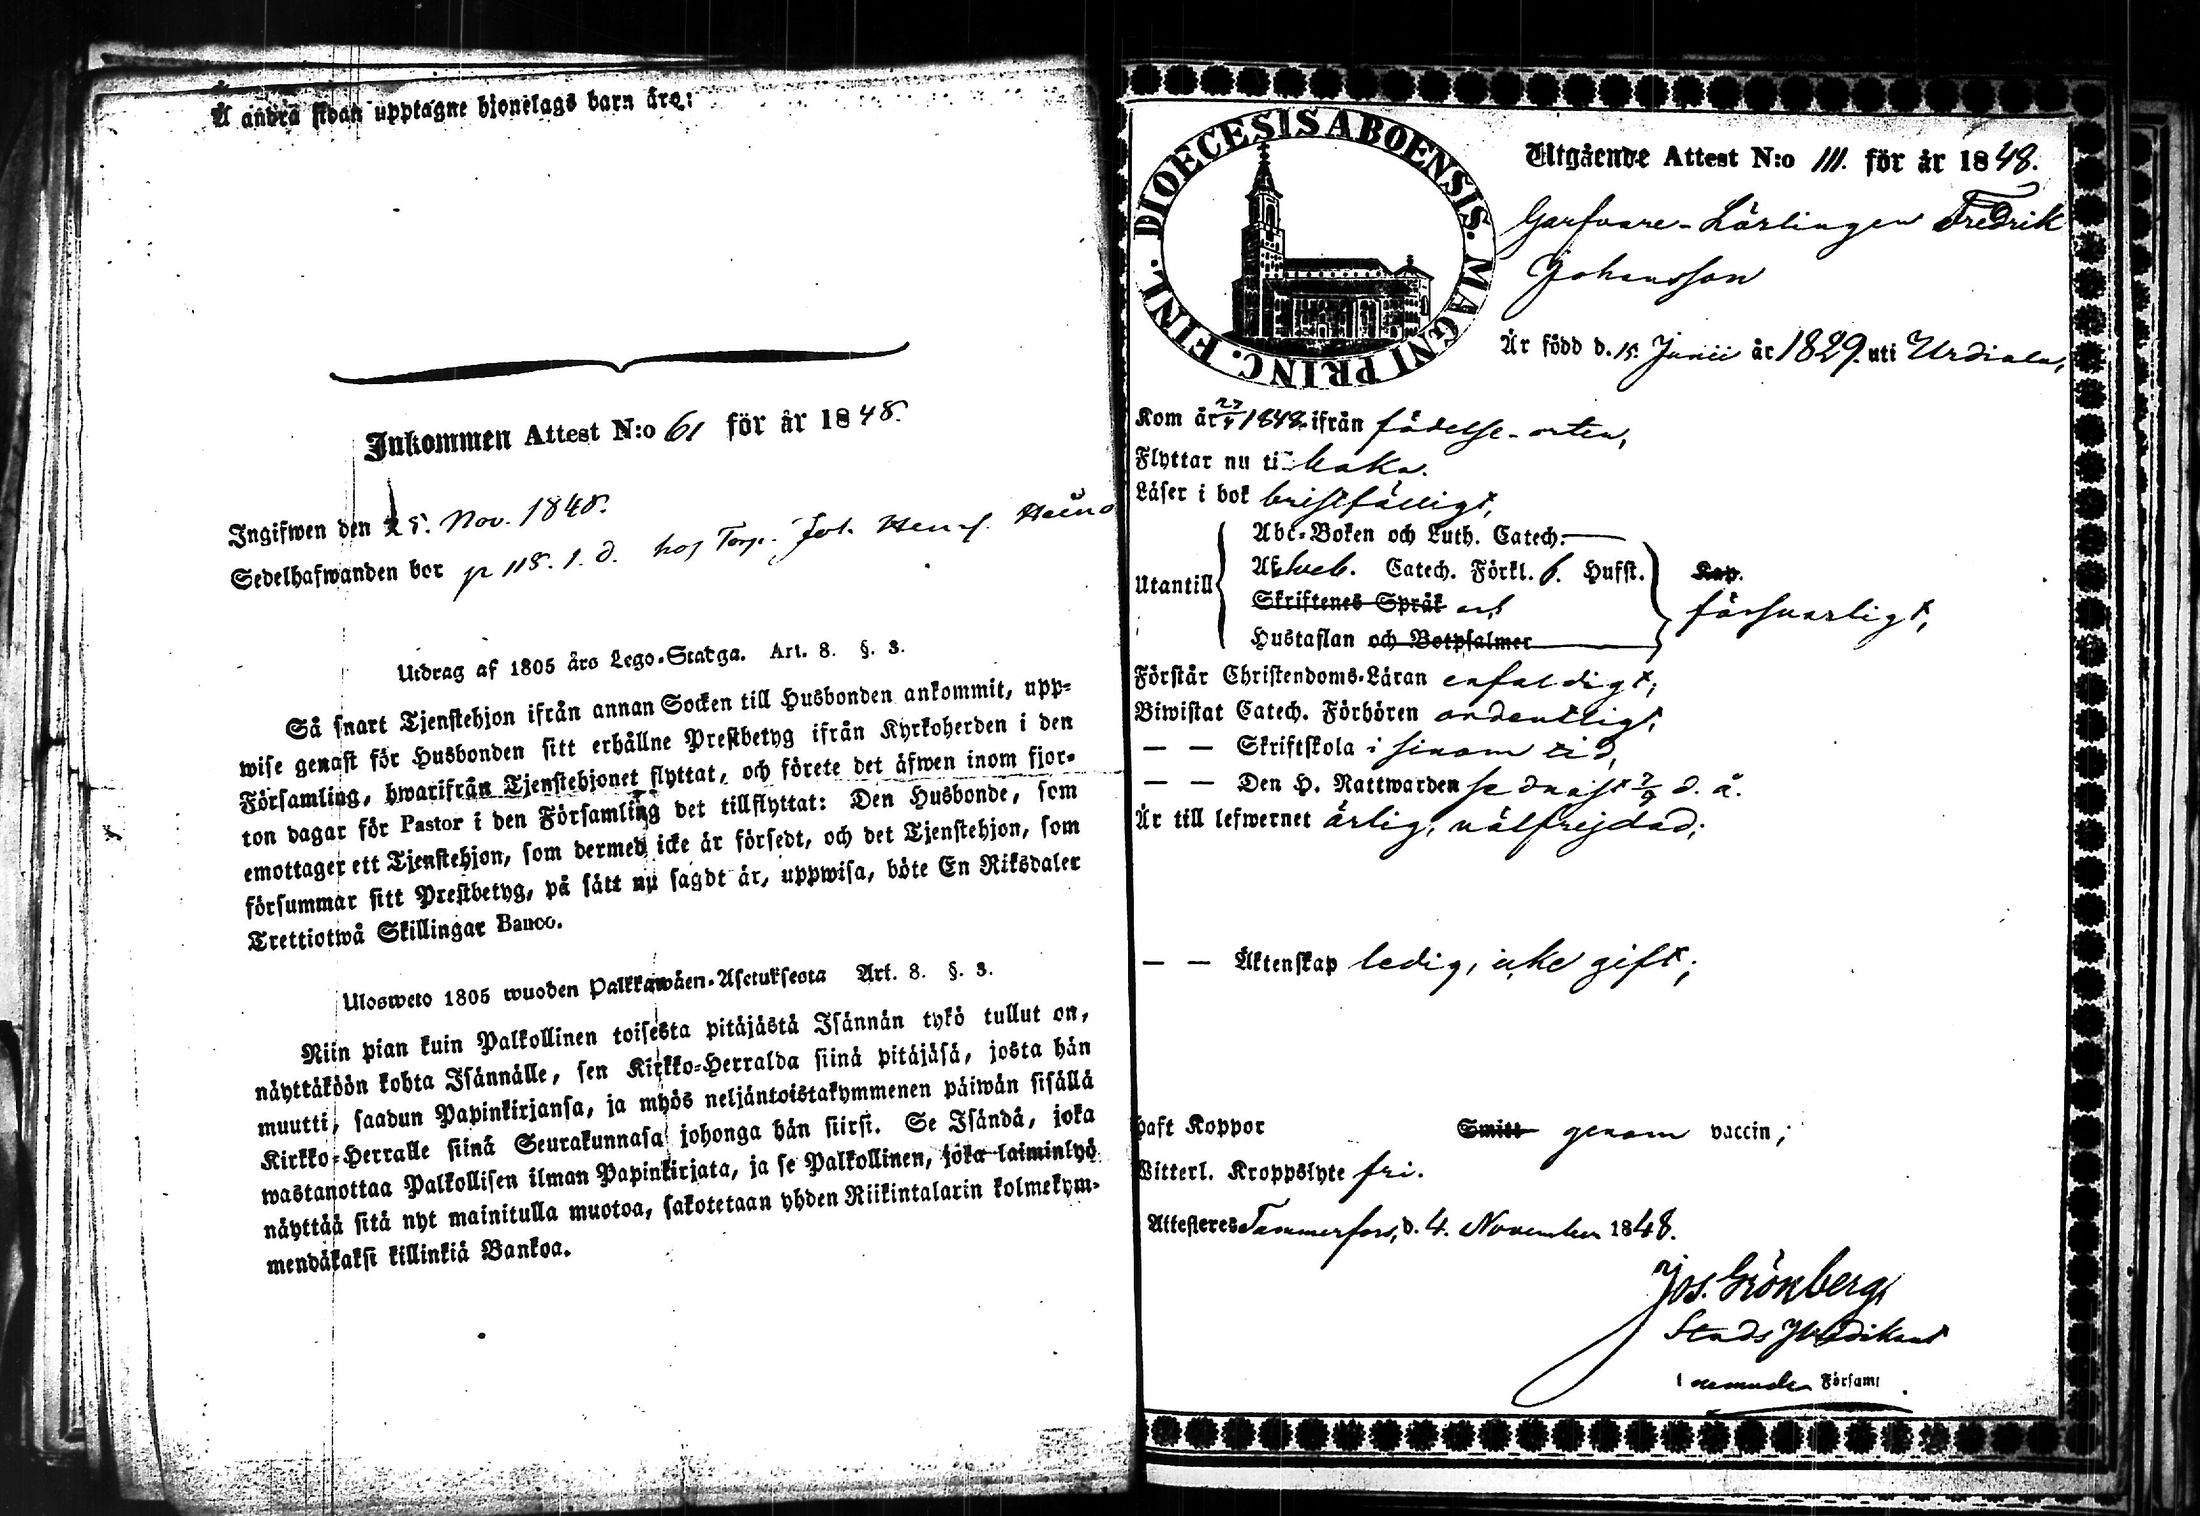 Å andra sidan upptagne hjonelags barn äro:
Inkommen Attest N:o 61 för år 1848.
Ingifwen den 25. Nov. 1848.
Sedelhafwanden bor p 118. 1. d. hos Torp. Joh. Henr.
Utdrag af 1805 års Lego-Stadga. Art. 8. §. 3.
Så snart Tjenstehjon ifrån annan Socken till Husbonden ankommit, upp-
wise genast för Husbonden sitt erhållne Prestbetyg ifrån Kyrkoherden i den
Församling, hwarifrån Tjenstehjonet flyttat, och förete det äfwen inom fjor-
ton dagar för Pastor i den Församling det tillflyttat: Den Husbonde, som
emottager ett Tjenstehjon, som dermed icke är försedt, och det Tjenstehjon, som
försummar sitt Prestbetyg, på sätt nu sagdt är, uppwisa, böte En Riksdaler
Trettiotwå Skillingar Banco.
Ulosweto 1805 wuoden Palkkawäen-Asetuksesta Art. 8. §. 3.
Niin pian kuin Palkollinen toisesta pitäjästä Isännän tykö tullut on,
näyttäköön kohta Isännälle, sen Kirkko-Herralda siinä pitäjäsä, josta hän
muutti, saadun Papinkirjansa, ja myös neljäntoistakymmenen päiwän sisällä
Kirkko-Herralle siinä Seurakunnasa johonga hän siirsi. Se Isändä, joka
wastanottaa Palkollisen ilman Papinkirjata, ja se Palkollinen, joka laiminlyö
näyttää sitä nyt mainitulla muotoa, sakotetaan yhden Riikintalarin kolmekym-
mendäkaksi killinkiä Bankoa.
DIOECESIS ABOENSIS. MAGNI PRINC. FINL.
Utgående Attest N:o 111. för år 1848.
Garfvare-Lärlingen Fredrik
Johansson
Är född d. 15. Junii år 1829. uti Urdiala,
Kom år 1848 ifrån födelse-orten,
Flyttar nu tillbaka.
Läser i bok bristfälligt,
Utantill
Abc-Boken och Luth. Catech.
Catech. Förkl. 6. Hufst. Kap.
Skriftenes Språk och
Hustaflan och Botpsalmer
försvarligt,
Förstår Christendoms-Läran enfaldigt,
Biwistat Catech. Förhören ordentligt,
— — Skriftskola i sinom tid,
— — Den H. Nattwarden sednast 7/9 d. å.
Är till lefwernet ärlig, välfrejdad;
— — Äktenskap ledig, icke gift;
haft Koppor Smitt genom vaccin;
Witterl. Kroppslyte fri.
Attesteres Tammerfors, d. 4. November 1848.
Jos. Grönberg,
Stads Predikant
i Församl